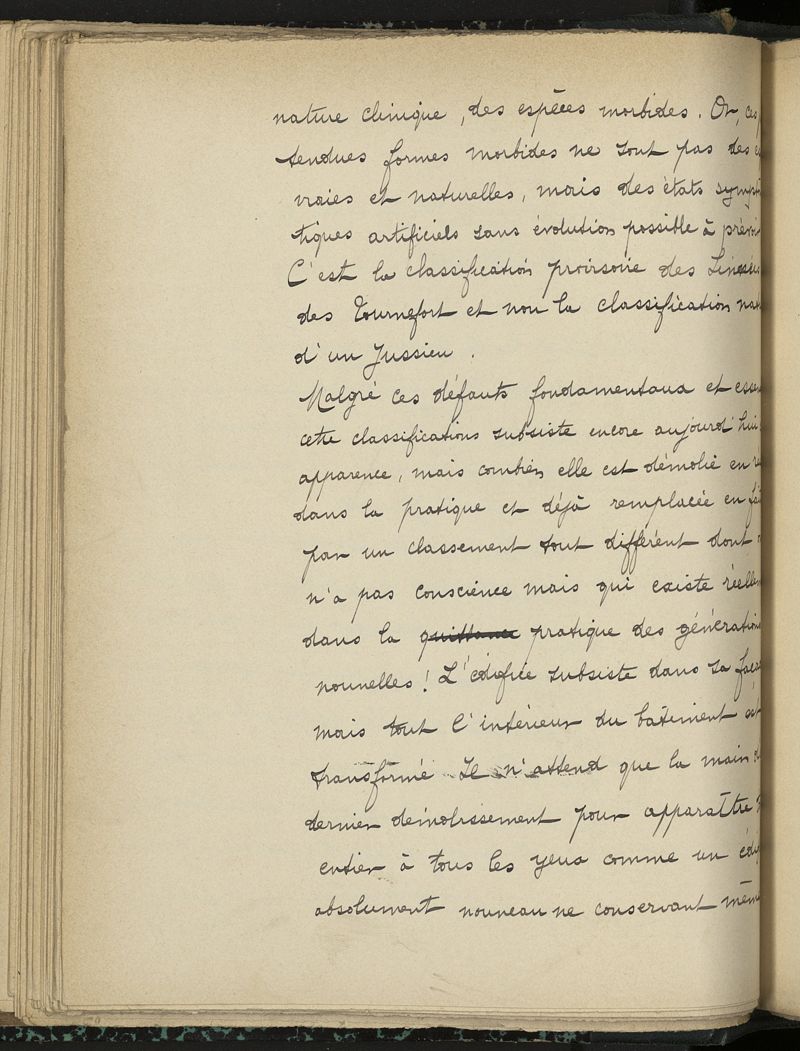 nature clinique, des espèces morbides. Or, ces
tendues formes morbides ne sont pas des
vraies et naturelles, mais des états sympt
tiques artificiels sans évolution possible à prévoir
C'est la classification proirsoire des Linnéus
des Tournefort et non la classification nat
d'un Jussieu.
Malgré ces défauts fondamentaux et essen
cette classifications subsiste encore aujourd'hui
apparence, mais combien elle est démolie en ré
dans la pratique et déjà remplacée en fai
par un classement tout différent dont
n'a pas conscience mais qui existe réellem
dans la pratique des générations
nouvelles! L'édifice subsiste dans sa faça
mais tout l'intérieur du bâtiment est
transformé Il n'attend que la main d
dernier démolissement pour apparaître
entier à tous les yeux comme un édif
absolument nouveau ne conservant même